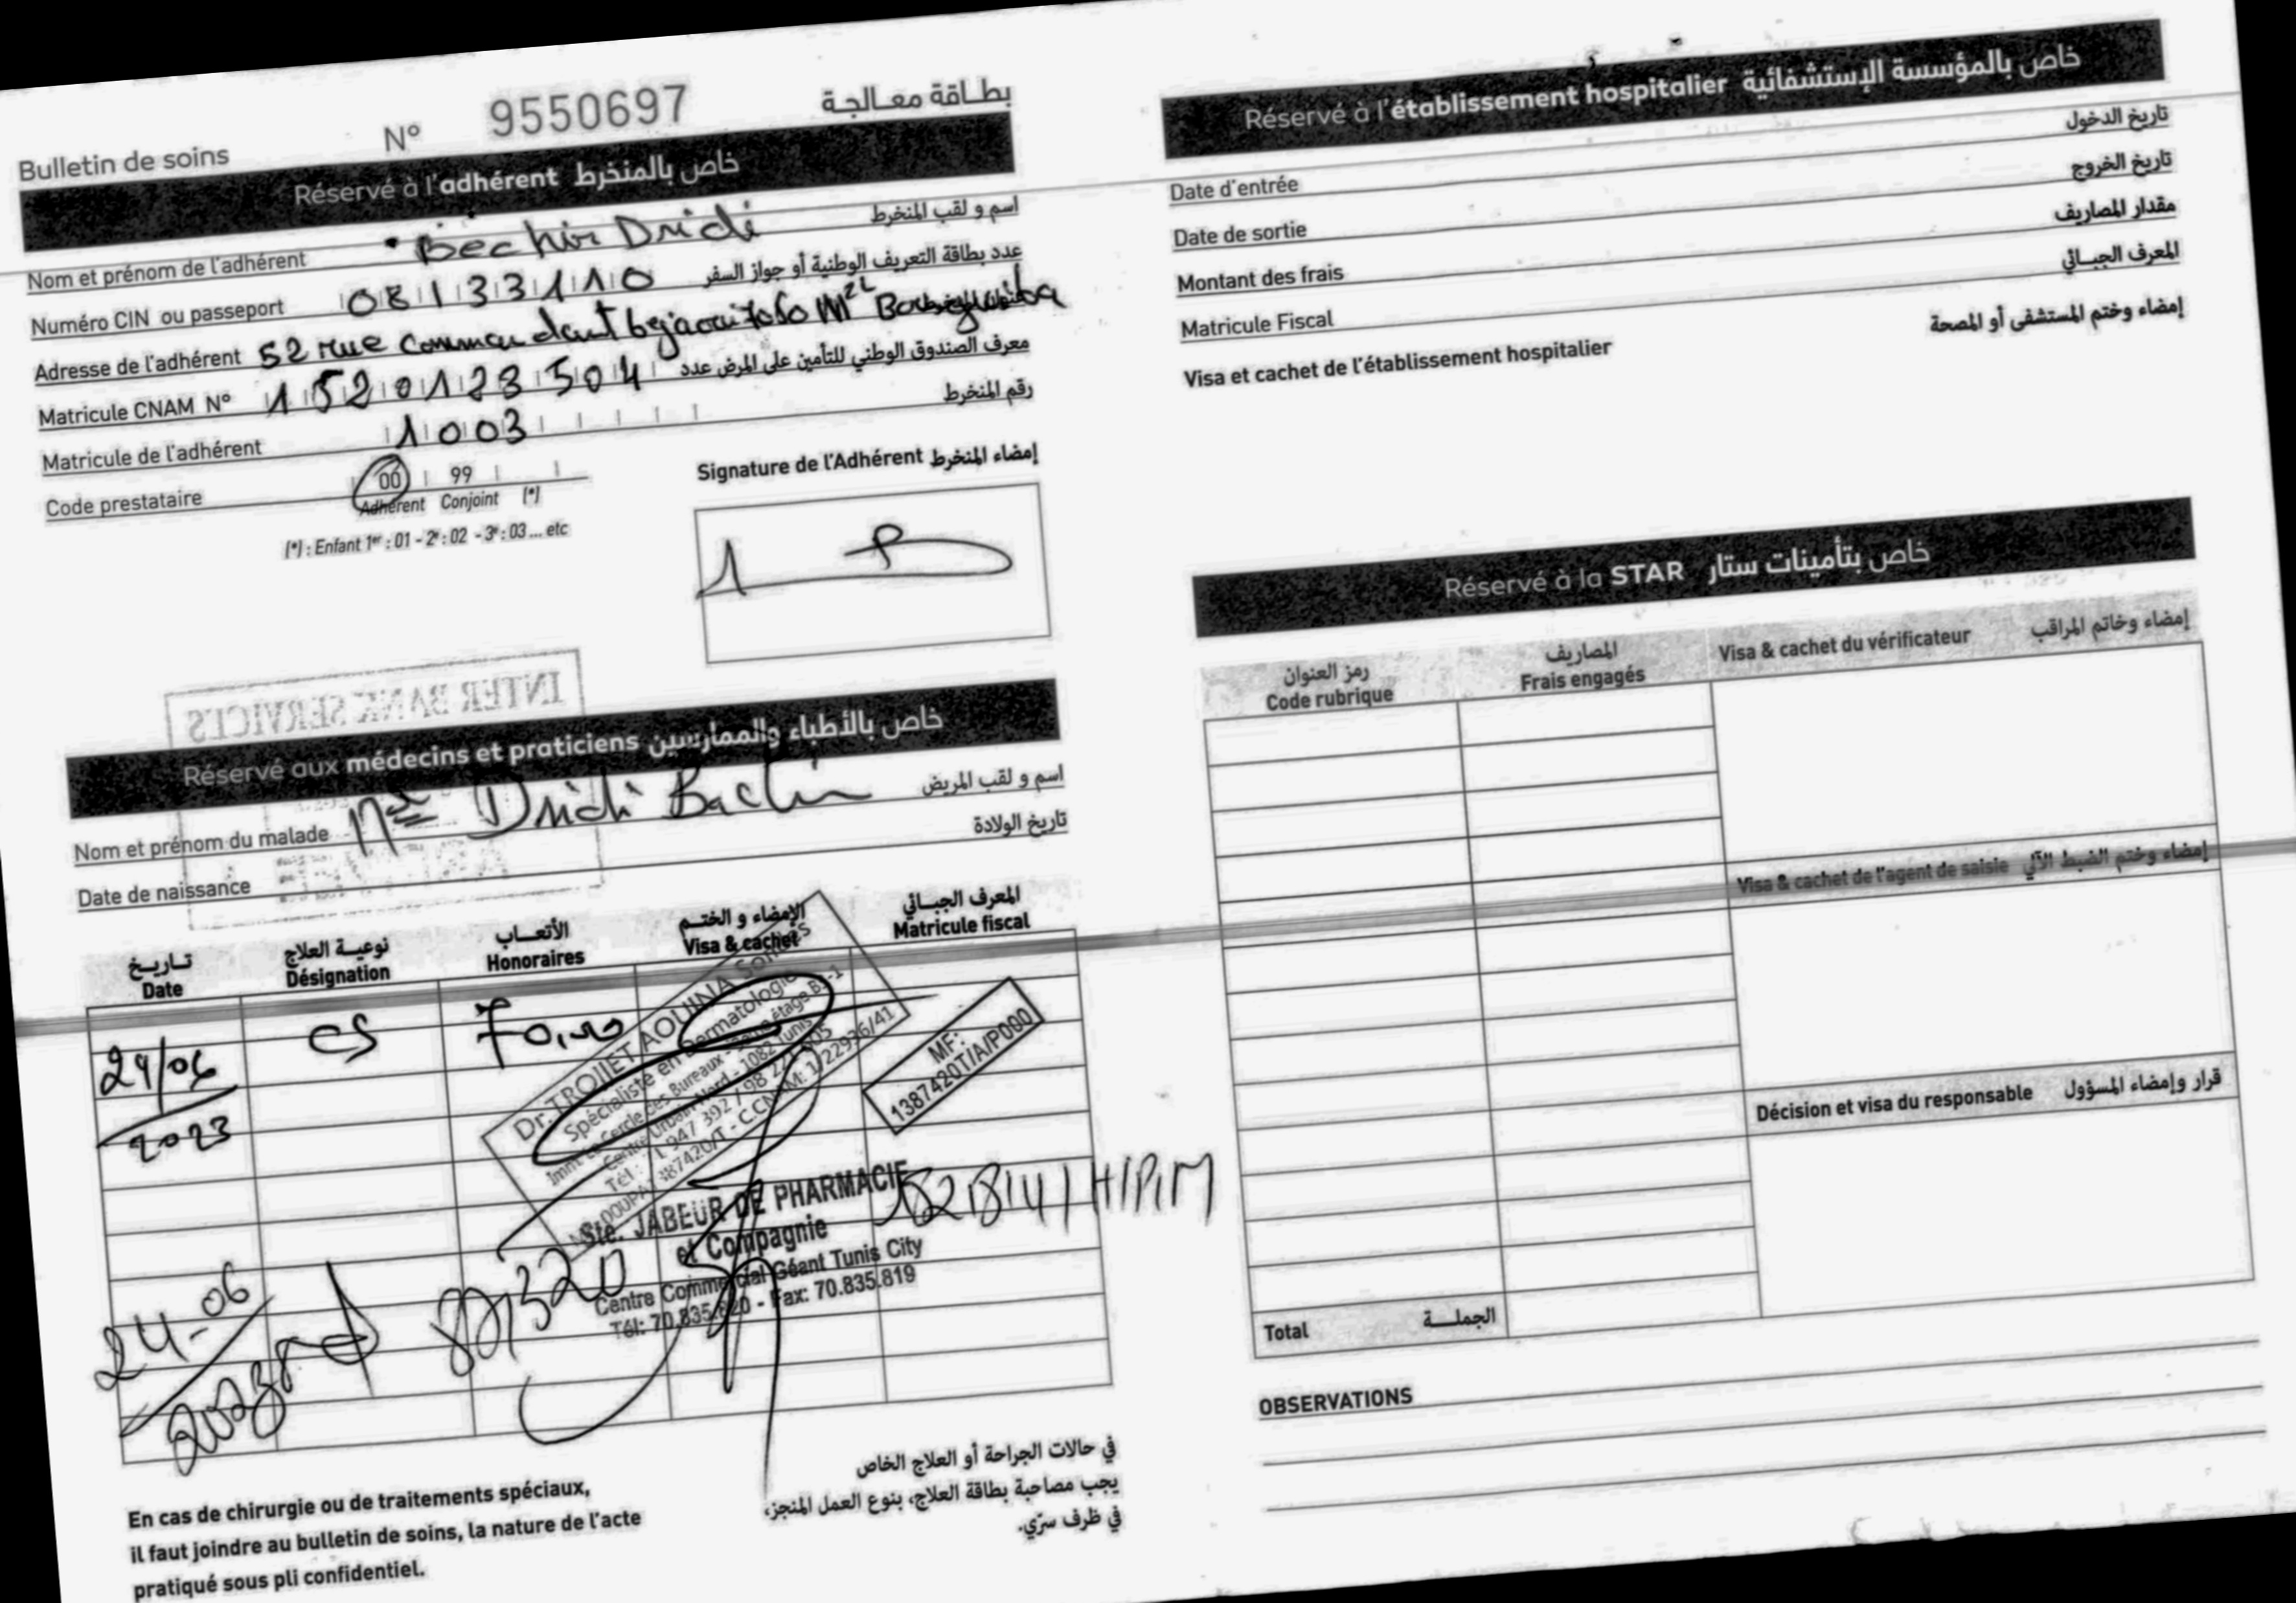 Bulletin de soins N° 9550697 بطاقة معالجة
Réservé à l'adhérent خاص بالمنخرط
Nom et prénom de l'adhérent Bechir Dridi اسم و لقب المنخرط
Numéro CIN ou passeport 08133110 عدد بطاقة التعريف الوطنية أو جواز السفر
Adresse de l'adhérent 52 rue commandant bejaoui 7050 M
Matricule CNAM N° 1520123504 معرف الصندوق الوطني للتأمين على المرض عدد
Matricule de l'adhérent 1003 رقم المنخرط
Code prestataire 00 99
Adhérent Conjoint (*)
(*) : Enfant 1er : 01 - 2e : 02 - 3e : 03 ... etc
Signature de l'Adhérent إمضاء المنخرط
INTER BANK SERVICES
Réservé aux médecins et praticiens خاص بالأطباء والممارسين
Nom et prénom du malade Dridi Bechir اسم و لقب المريض
Date de naissance تاريخ الولادة
تاريخ نوعية العلاج الأتعاب الإمضاء و الختم المعرف الجبائي
Date Désignation Honoraires Visa & cachet Matricule fiscal
24/06 CS
2023
Dr. TROJJET AOUINA Sondes
Spécialiste en Dermatologie
Immt Le Cercle des Bureaux - étage B
Centre Urbain Nord - 1082 Tunis
MF:
1387420T/A/P000
Ste. JABEUR DE PHARMACIE
et Compagnie
Centre Commercial Géant Tunis City
Tél: 70.835.820 - Fax: 70.835.819
24-06
2023
En cas de chirurgie ou de traitements spéciaux,
il faut joindre au bulletin de soins, la nature de l'acte
pratiqué sous pli confidentiel.
في حالات الجراحة أو العلاج الخاص
يجب مصاحبة بطاقة العلاج، بنوع العمل المنجز،
في ظرف سرّي.
Réservé à l'établissement hospitalier خاص بالمؤسسة الإستشفائية
Date d'entrée تاريخ الدخول
Date de sortie تاريخ الخروج
Montant des frais مقدار المصاريف
Matricule Fiscal المعرف الجبائي
Visa et cachet de l'établissement hospitalier إمضاء وختم المستشفى أو المصحة
Réservé à la STAR خاص بتأمينات ستار
رمز العنوان المصاريف
Code rubrique Frais engagés Visa & cachet du vérificateur إمضاء وخاتم المراقب
Visa & cachet de l'agent de saisie إمضاء وختم الضبط الآلي
Décision et visa du responsable قرار وإمضاء المسؤول
Total الجملة
OBSERVATIONS